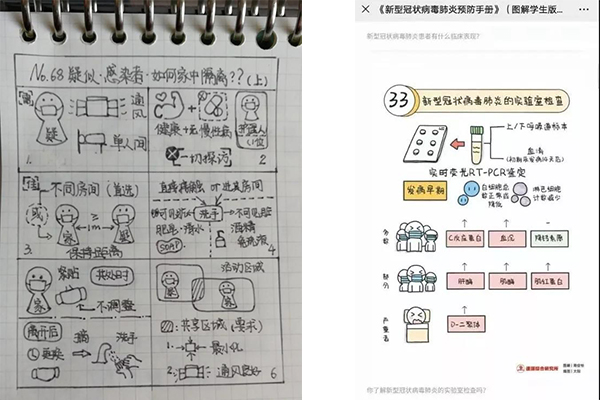 No.68 疑似·感染者·如何家中隔离??(上)
疑
通风
单人间
1.
健康+无慢性病
护理人
1位
一切探访
2
不同房间(首选)
或
≥1m
家
疑
保持距离
3.
直接接触 或 进其房间
洗手
肥皂+清水
SOAP
酒精
免洗液
4
紧贴
共处时
家
不调整
离开后
更换
洗手
活动区域
家
:共享区域(要求)
1.
最小化
2.
通风良好
6
《新型冠状病毒肺炎预防手册》(图解学生版...
新型冠状病毒肺炎患者有什么临床表现?
33
新型冠状病毒肺炎的实验室检查
上/下呼吸道标本
血清
实时荧光RT-PCR鉴定
发病早期
白细胞总数正常或降低
淋巴细胞计数减少
多数
C反应蛋白
血沉
降钙素原
部分
肝酶
肌酶
肌红蛋白
严重者
D-二聚体
你了解新型冠状病毒肺炎的实验室检查吗?